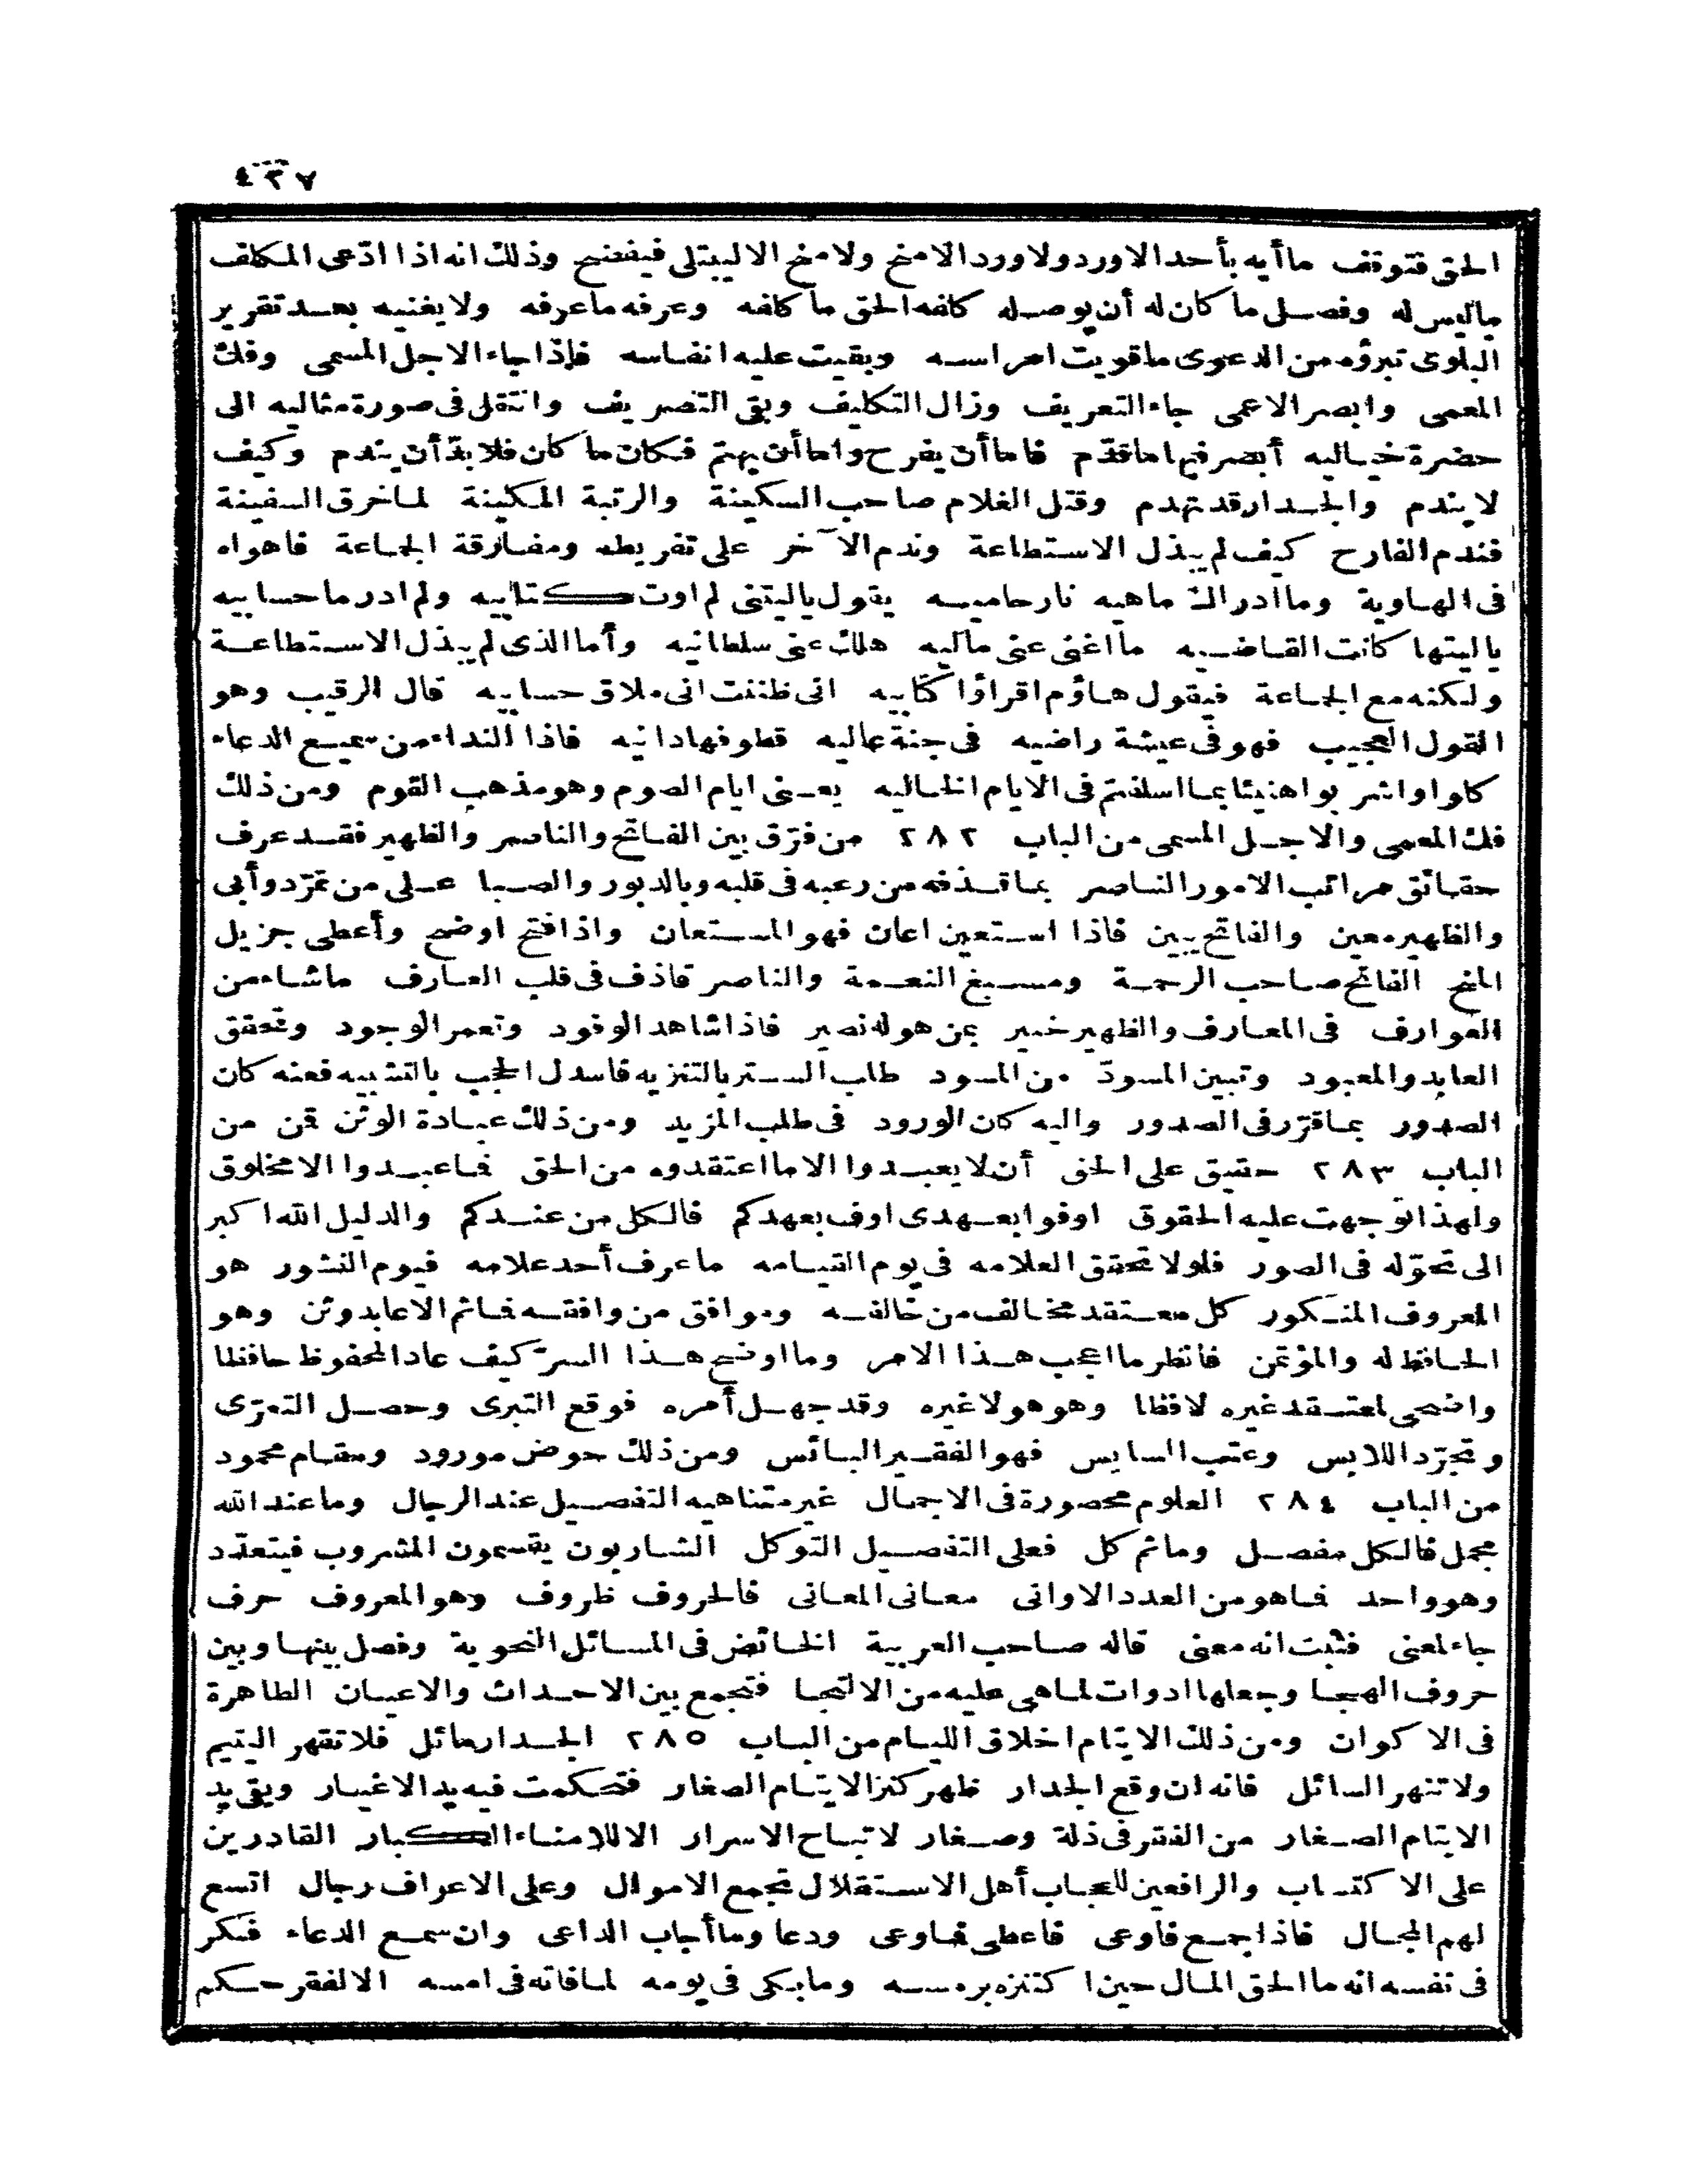 ٤٣٧
الحق فتوقف ما أيه بأحد الا ورد ولا ورد الا منح ولا منح الا ليبتلى فيفضح وذلك انه اذا ادّعى المكلف
ما ليس له وفصل ما كان له أن يوصله كلفه الحق ما كلفه وعرفه ما عرفه ولا يغنيه بعد تقرير
البلوى تبرؤه من الدعوى ما قويت امراسه وبقيت عليه انفاسه فإذا جاء الاجل المسمى وفك
المعمى وابصر الاعمى جاء التعريف وزال التكليف وبقى التصريف وانتقل فى صورة مثاليه الى
حضرة خياليه أبصر فيها ما قدّم فاما أن يفرح واما أن يهتم فكان ما كان فلا بدّ أن يندم وكيف
لا يندم والجدار قد تهدم وقتل الغلام صاحب السكينة والرتبة المكينة لما خرق السفينة
فندم الفارح كيف لم يبذل الاستطاعة وندم الآخر على تفريطه ومفارقة الجماعة فاهواه
فى الهاوية وما ادراك ماهيه نار حاميه يقول ياليتنى لم اوت كتابيه ولم ادر ما حسابيه
ياليتها كانت القاضيه ما اغنى عنى ماليه هلك عنى سلطانيه وأما الذى لم يبذل الاستطاعة
ولكنه مع الجماعة فيقول هاؤم اقراؤا كتابيه انى ظننت انى ملاق حسابيه قال الرقيب وهو
القول العجيب فهو فى عيشة راضيه فى جنة عاليه قطوفها دانيه فاذا النداء من سميع الدعاء
كلوا واشربوا هنيئا بما اسلفتم فى الايام الخاليه يعنى ايام الصوم وهو مذهب القوم ومن ذلك
فك المعمى والاجل المسمى من الباب ٢٨٢ من فرّق بين الفاتح والناصر والظهير فقد عرف
حقائق مراتب الامور الناصر بما قذفه من رعبه فى قلبه وبالدبور والصبا على من تمرّد وأبى
والظهير معين والفاتح يبين فاذا استعين اعان فهو المستعان واذا فتح اوضح وأعطى جزيل
المنح الفاتح صاحب الرحمة ومسبغ النعمة والناصر قاذف فى قلب العارف ما شاء من
العوارف فى المعارف والظهير خبير بمن هو له نصير فاذا شاهد الوفود وتعمر الوجود وتحقق
العابد والمعبود وتبين المسودّ من المسود طلب الستر بالتنزيه فاسدل الحجب بالتشبيه فعنه كان
الصدور بما قرّر فى الصدور واليه كان الورود فى طلب المزيد ومن ذلك عبادة الوثن قمن من
الباب ٢٨٣ حقيق على الخلق أن لا يعبدوا الا ما اعتقدوه من الحق فما عبدوا الا مخلوق
ولهذا توجهت عليه الحقوق اوفوا بعهدى اوف بعهدكم فالكل من عندكم والدليل الله اكبر
الى تحوّله فى الصور فلولا تحقق العلامه فى يوم القيامه ما عرف أحد علامه فيوم النشور هو
المعروف المنكور كل معتقد مخالف من خالفه وموافق من وافقه فما ثم الا عابد وثن وهو
الحافظ له والمؤتمن فانظر ما اعجب هذا الامر وما اوضح هذا السرّ كيف عاد المحفوظ حافظا
واضحى لمعتقد غيره لافظا وهو هو لا غيره وقد جهل أمره فوقع التبرى وحصل التعرّى
وتجرّد اللابس وعتب السابس فهو الفقير البائس ومن ذلك حوض مورود ومقام محمود
من الباب ٢٨٤ العلوم محصورة فى الاجمال غير متناهيه التفصيل عند الرجال وما عند الله
مجمل فالكل مفصل وما ثم كل فعلى التفصيل التوكل الشاربون يقسمون المشروب فيتعدّد
وهو واحد فما هو من العدد الاوانى معانى المعانى فالحروف ظروف وهو المعروف حرف
جاء لمعنى فثبت انه معنى قاله صاحب العربية الخائض فى المسائل النحوية وفصل بينها وبين
حروف الهجا وجعلها ادوات لما هى عليه من الالتجا فتجمع بين الاحداث والاعيان الظاهرة
فى الاكوان ومن ذلك الايتام اخلاق الليام من الباب ٢٨٥ الجدار مائل فلا تقهر اليتيم
ولا تنهر السائل فانه ان وقع الجدار ظهر كنز الايتام الصغار فتحكمت فيه يد الاغيار وبقى يد
الايتام الصغار من الفقر فى ذلة وصغار لا تباح الاسرار الا للامناء الكبار القادرين
على الاكتساب والرافعين للحجاب أهل الاستقلال بجمع الاموال وعلى الاعراف رجال اتسع
لهم المجال فاذا جمع فاوعى فاعطى فما وعى ودعا وما أجاب الداعى وان سمع الدعاء فكر
فى نفسه انه ما الحق المال حين اكتنزه برمسه وما بكى فى يومه لما فاته فى امسه الا لفقر حكم